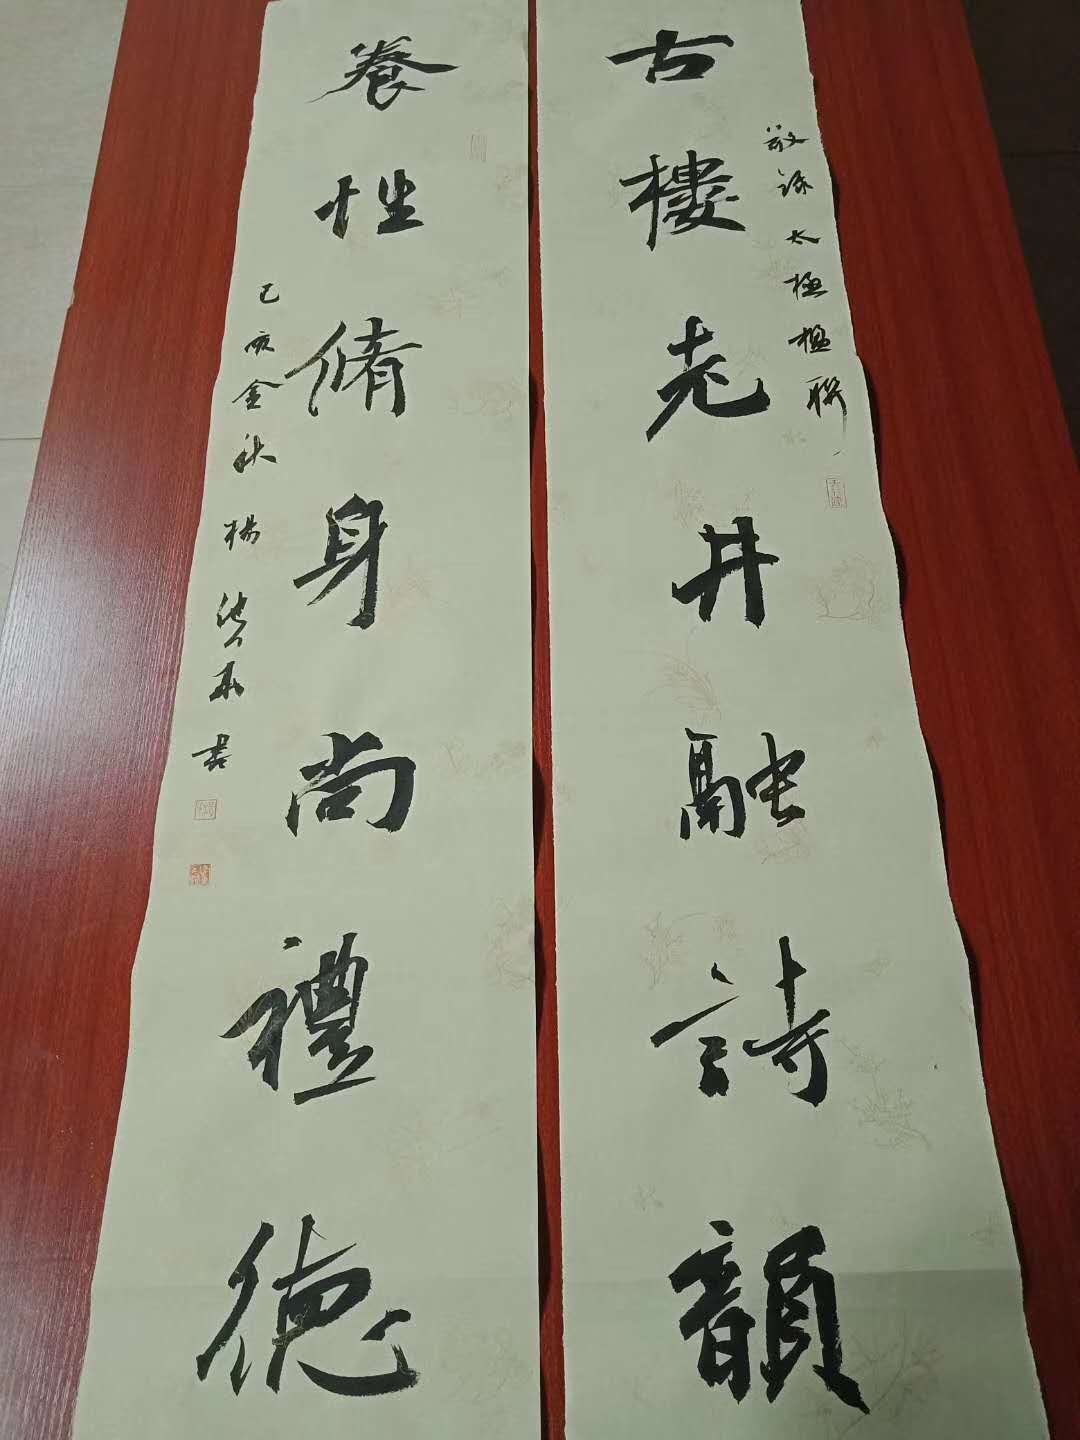 敬錄太極楹聯
古樓老井融詩韻
養性脩身尚禮德
己亥金秋 楊 書